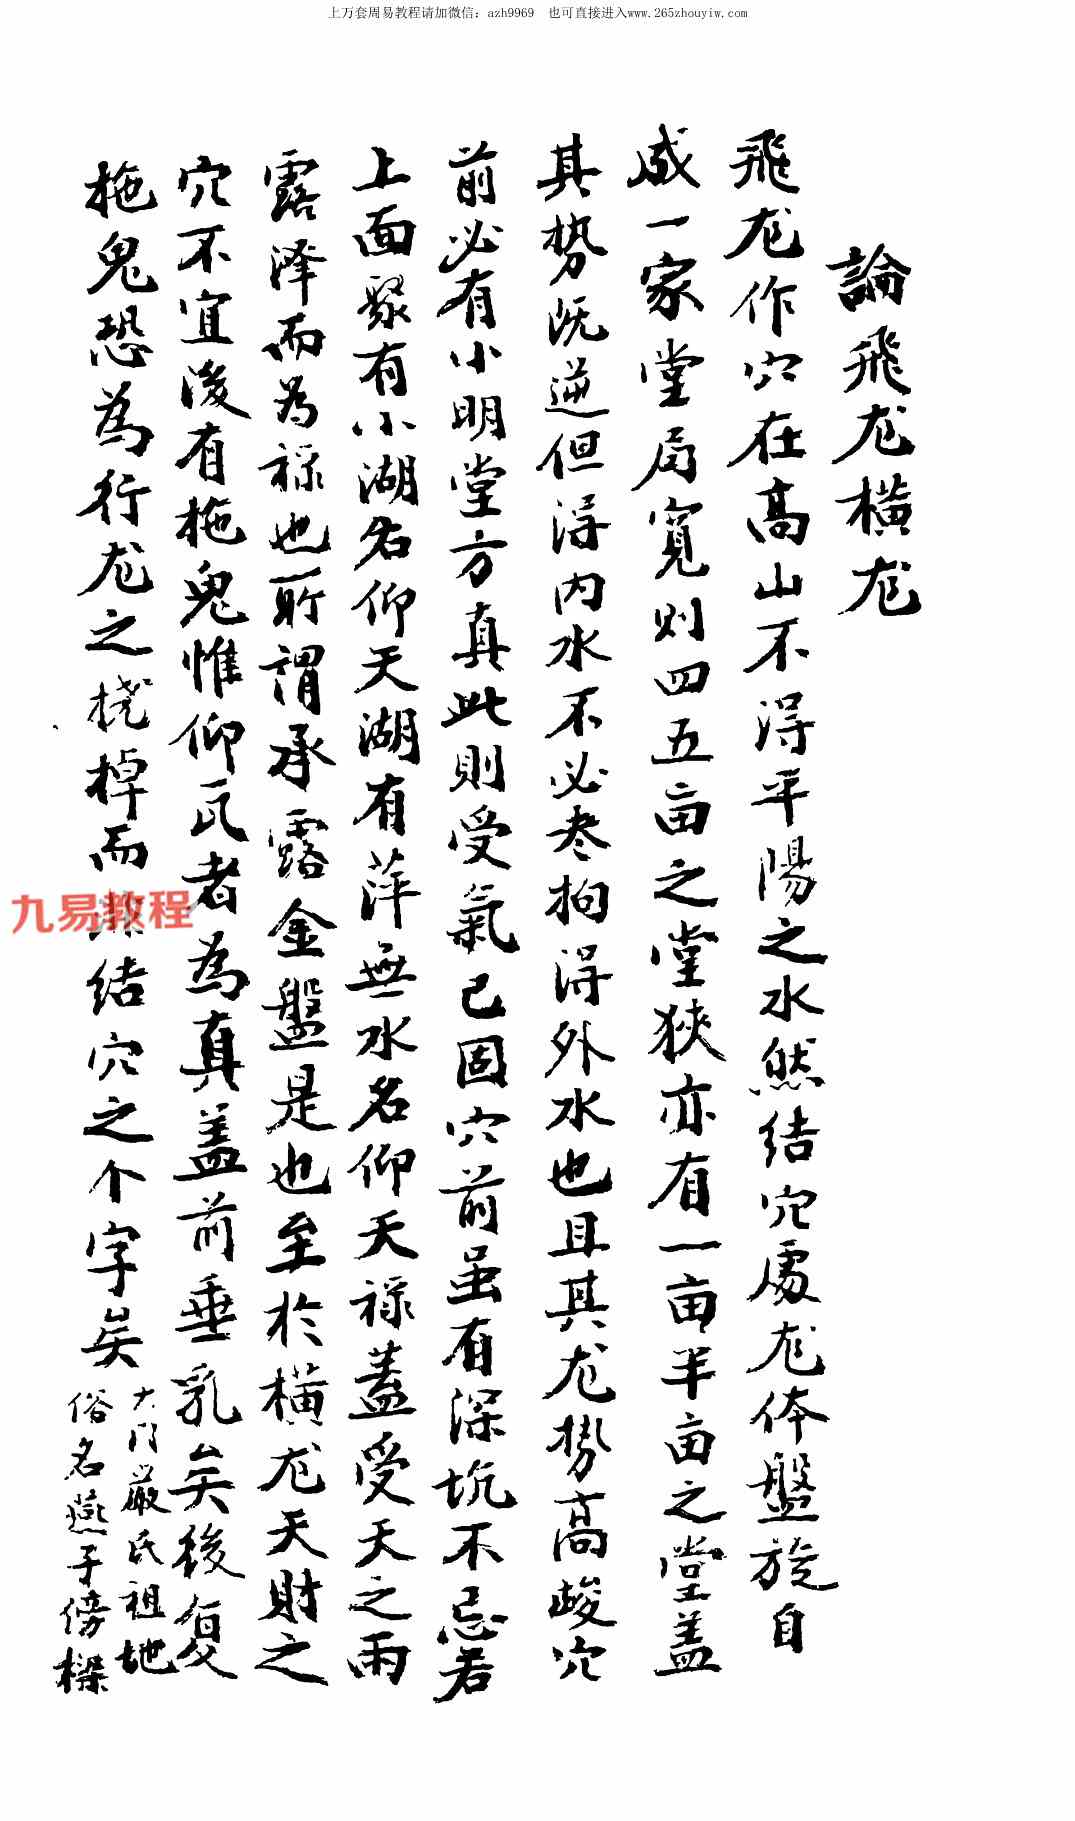 上万套周易教程请加微信：azh9969　也可直接进入www.265zhouyiw.com
論飛龙橫龙
飛龙作穴在高山不得平陽之水然结穴處龙体盤旋自
成一家堂局寬则四五亩之堂狹亦有一亩半亩之堂盖
其势既逆但得内水不必尽拘得外水也且其龙势高峻穴
前必有小明堂方真此則受氣已固穴前虽有深坑不忌若
上面聚有小湖名仰天湖有萍無水名仰天禄蓋受天之雨
露泽而为禄也所謂承露金盤是也至於橫龙天財之
穴不宜後有拖鬼惟仰瓦者為真盖前垂乳矣後復
拖鬼恐為行龙之桡棹而 结穴之个字矣
大门嚴氏祖地
俗名燕子傍樑
九易教程